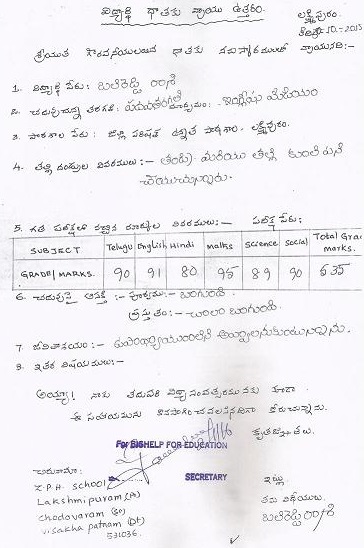 విద్యార్థి దాతకు వ్రాయు ఉత్తరం.
లక్ష్మీపురం.
10-2015
శ్రీయుత గౌరవనీయులయిన దాతకు నమస్కారములతో వ్రాయునది:-
1. విద్యార్థి పేరు: బలిరెడ్డి రాశి
2. చదువుచున్న తరగతి: పదవతరగతి మాధ్యమం:- ఇంగ్లీషు మీడియం
3. పాఠశాల పేరు: జిల్లా పరిషత్ ఉన్నత పాఠశాల. లక్ష్మీపురం.
4. తల్లి దండ్రుల వివరములు:- తండ్రి మరియు తల్లి కూలి పని
చేయుచున్నారు.
5. గత పరీక్షలో వచ్చిన మార్కుల వివరములు:- పరీక్ష పేరు:
SUBJECT Telugu English Hindi maths science social Total Grad marks.
GRADE/MARKS. 90 91 80 95 89 90 535
6. చదువుపై ఆసక్తి :- పూర్వము:- బాగుంది.
ప్రస్తుతం:- చాలా బాగుంది.
7. జీవితాశయం:- ఉపాధ్యాయురాలిని అవ్వాలనుకుంటున్నాను.
8. ఇతర విషయములు:-
అయ్యా! నాకు తదుపరి విద్యాసంవత్సరమునకు కూడా
ఈ సహాయమును కొనసాగించవలసినదిగా కోరుచున్నాను.
కృతజ్ఞతలు.
For BIGHELP FOR EDUCATION
SECRETARY
చిరునామా:
Z.P.H. School
Lakshmipuram(P)
Chodavaram (M)
Visakha patnam (Dt)
531036.
ఇట్లు
తమ విధేయులు
బలిరెడ్డి రాశి